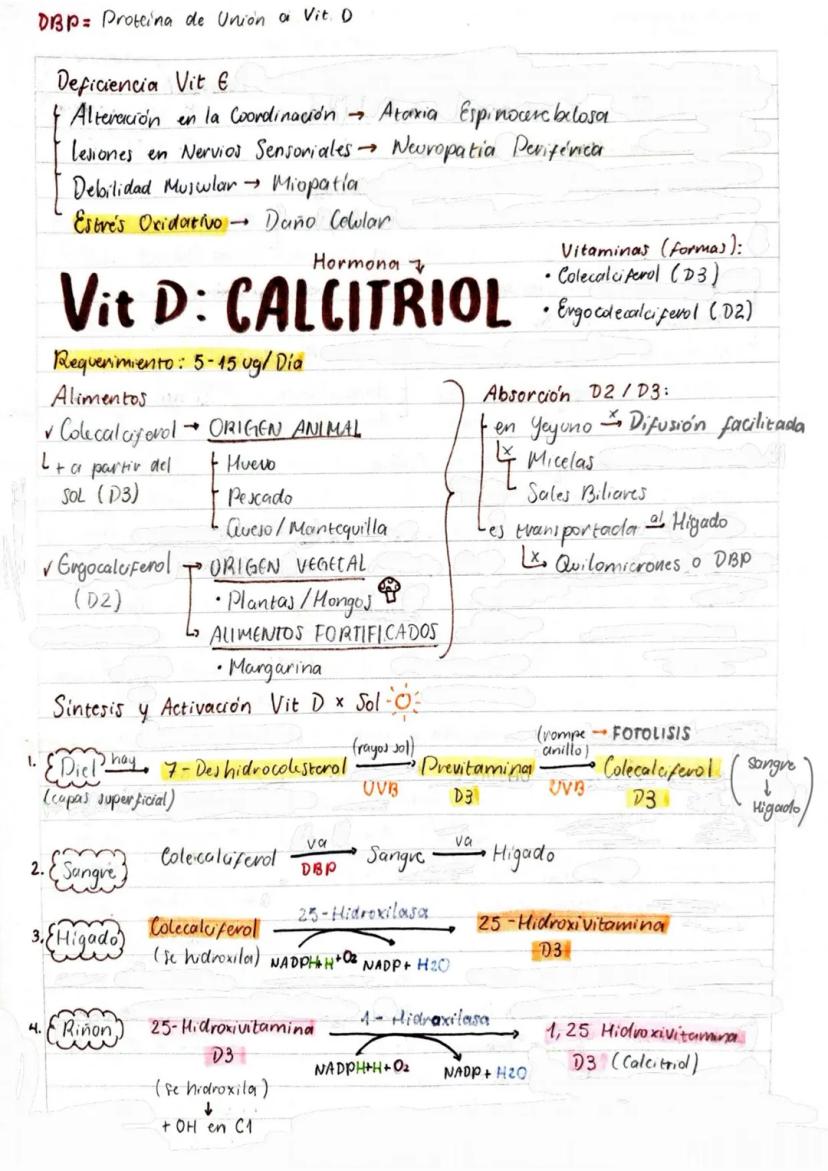 DBP= Proteína de Unión a Vit. D
Deficiencia Vit E
Alteración en la Coordinación → Ataxia Espinocerebelosa
Lesiones en Nervios Sensoriales → Neuropatía Periférica
Debilidad Muscular → Miopatía
Estrés Oxidativo → Daño Celular
Hormona
Vit D: CALCITRIOL
Vitaminas (formas):
• Colecalciferol (D3)
• Ergocolecalciferol (D2)
Requerimiento: 5-15 ug/Día
Alimentos
✓ Colecalciferol → ORIGEN ANIMAL
+ a partir del
SOL (D3)
Huevo
Pescado
Queso/Mantequilla
✓ Ergocalciferol → ORIGEN VEGETAL
(D2)
• Plantas/Hongos
ALIMENTOS FORTIFICADOS
• Margarina
Absorción D2/D3:
en Yeyuno x→ Difusión facilitada
x Micelas
Sales Biliares
es transportada al Hígado
x Quilomicrones o DBP
Síntesis y Activación Vit D x Sol
1. Piel hay → 7-Deshidrocolesterol (rayos sol) → Previtamina (rompe anillo) → FOTOLISIS Colecalciferol
(capas superficial) UVB D3 UVB D3
(Sangre ↓ Hígado)
2. Sangre Colecalciferol va → Sangre va → Hígado
DBP
3. Hígado Colecalciferol 25-Hidroxilasa → 25-Hidroxivitamina
(se hidroxila) NADPH+H+O2 NADP+ H2O D3
4. Riñon 25-Hidroxivitamina 1-Hidroxilasa → 1,25 Hidroxivitamina
D3 NADPH+H+O2 NADP+ H2O D3 (Calcitriol)
(se hidroxila)
↓
+ OH en C1